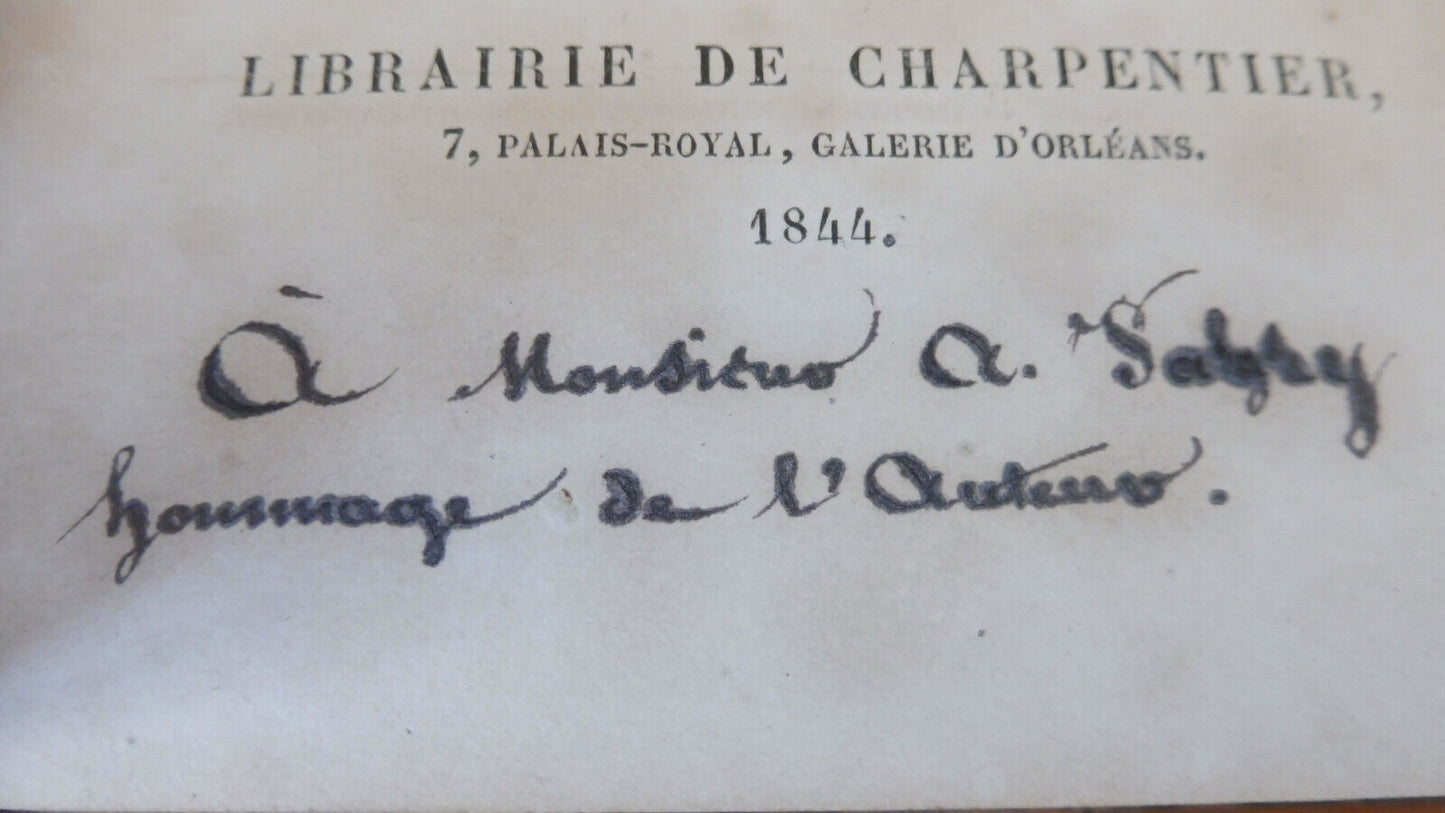 LIBRAIRIE DE CHARPENTIER,
7, PALAIS-ROYAL, GALERIE D'ORLÉANS.
1844.
À Monsieur A.
hommage de l'Auteur.